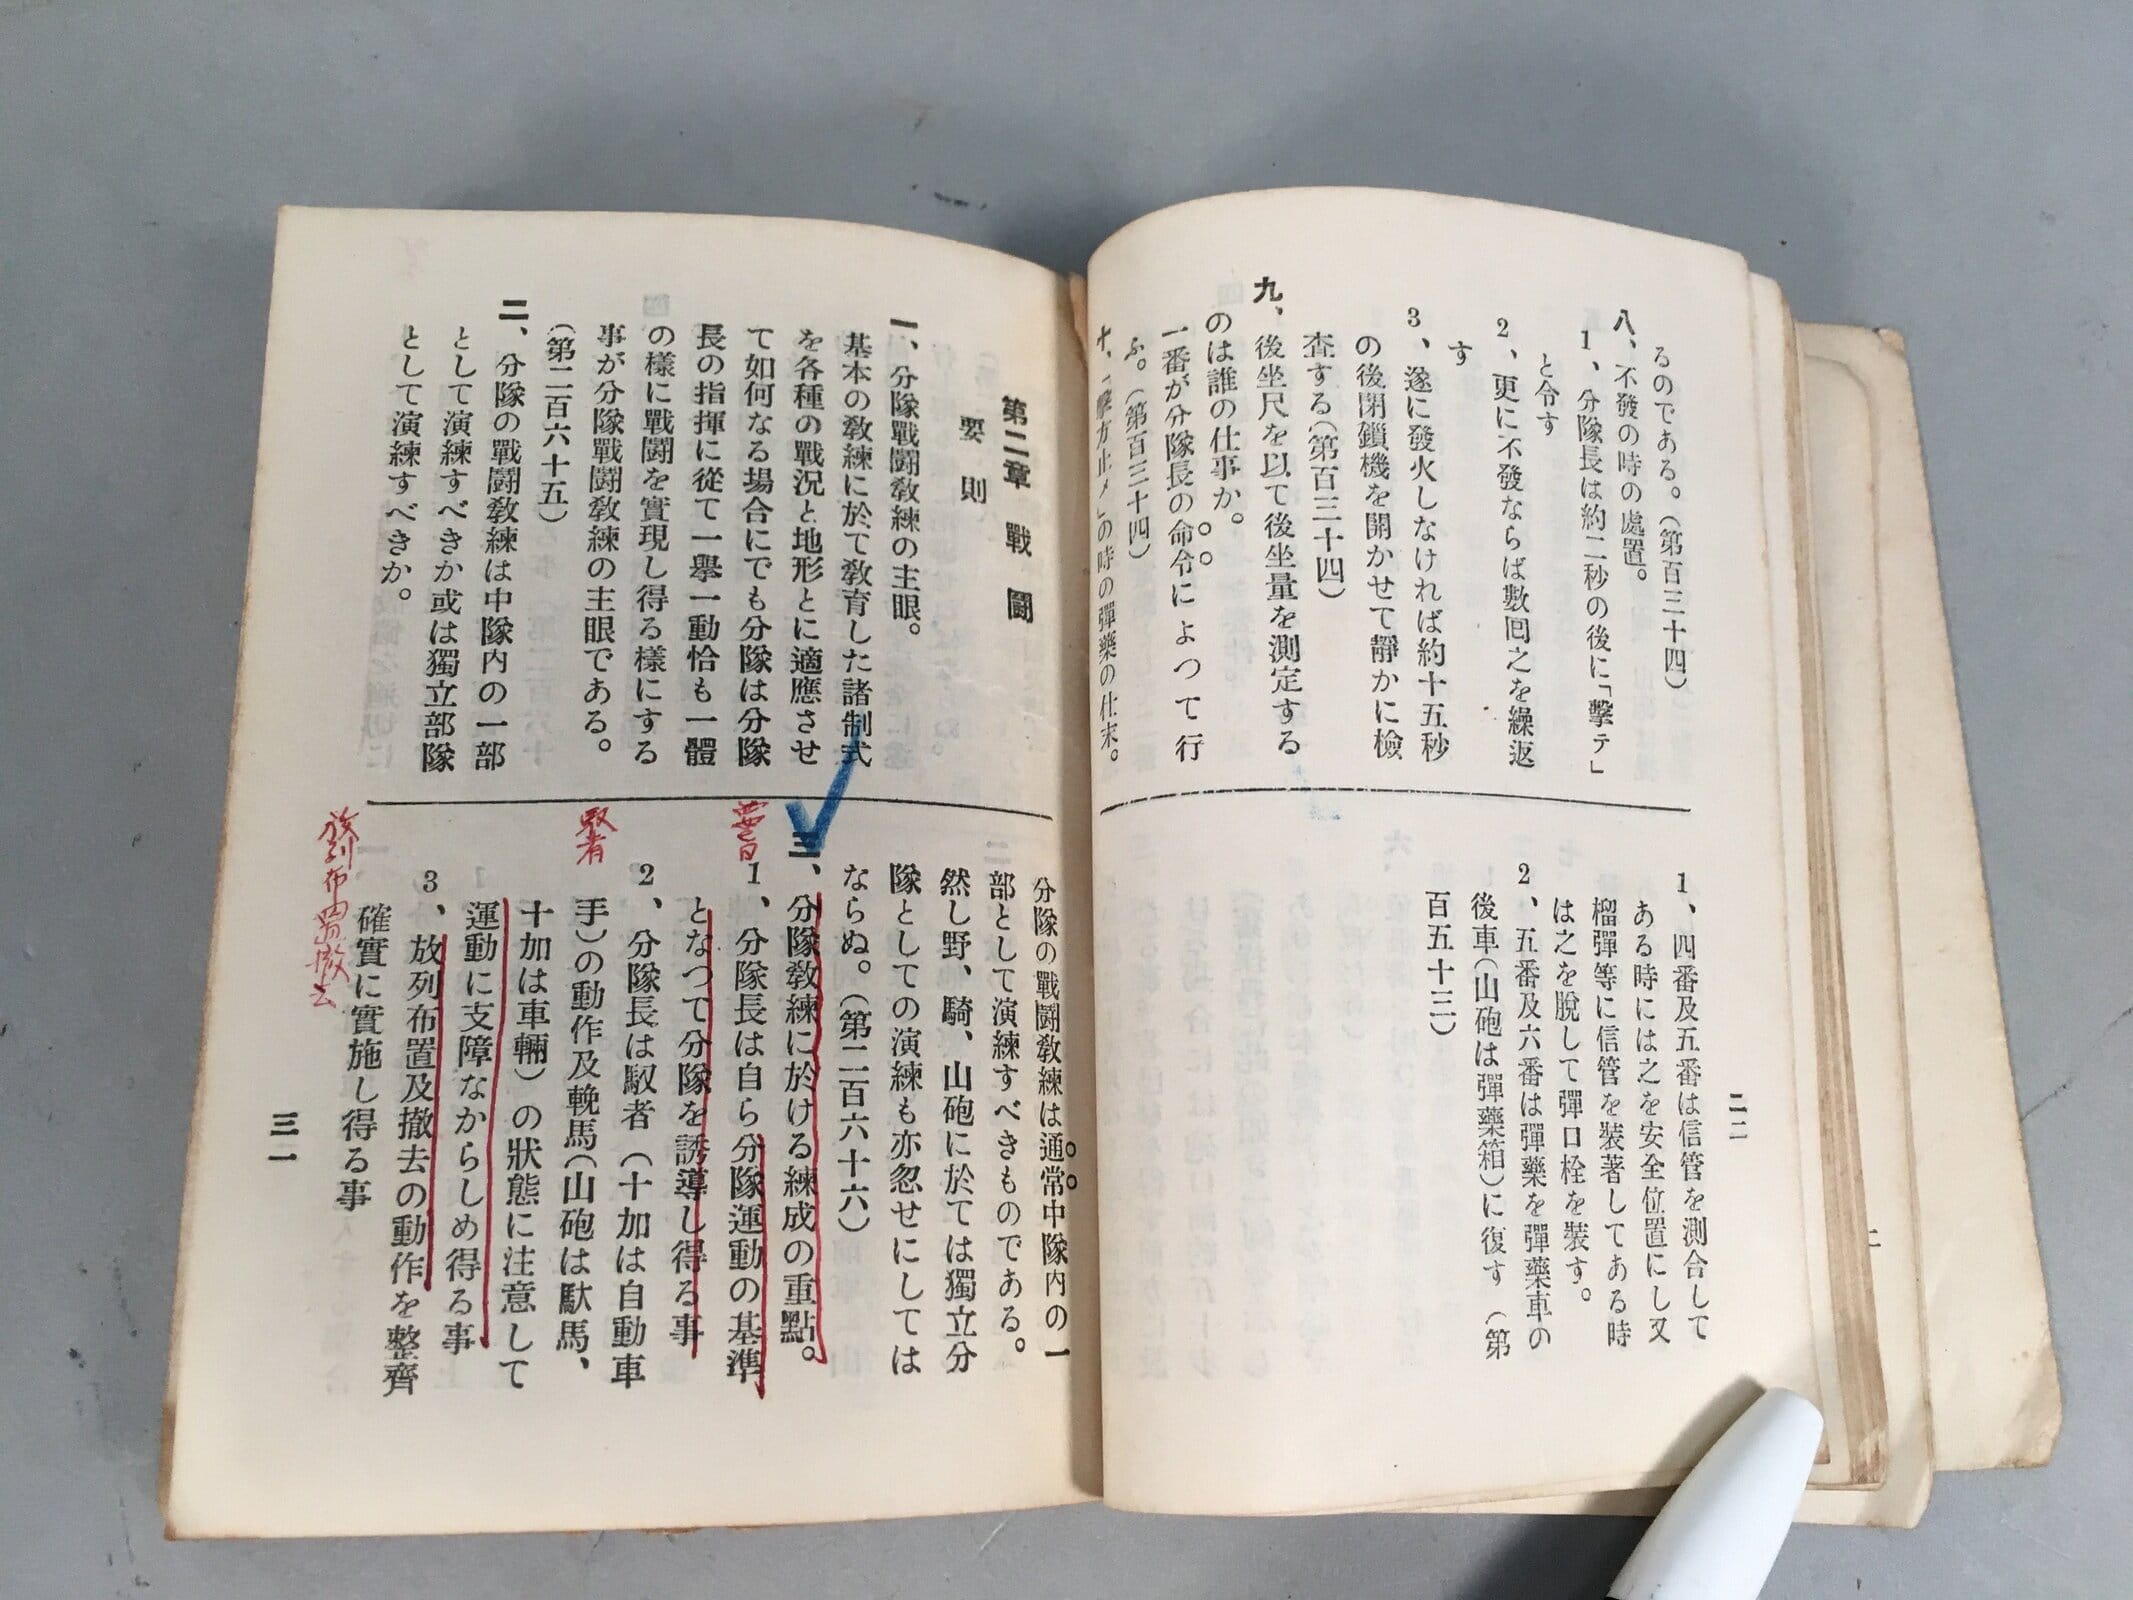 るのである。(第百三十四)
八、不發の時の處置。
1、分隊長は約二秒の後に「擊テ」
と令す
2、更に不發ならば數囘之を繰返
す
3、遂に發火しなければ約十五秒
の後閉鎖機を開かせて靜かに檢
査する(第百三十四)
九、後坐尺を以て後坐量を測定する
のは誰の仕事か。
一番が分隊長の命令によつて行
ふ。(第百三十四)
十、「擊方止メ」の時の彈藥の仕末。
1、四番及五番は信管を測合して
ある時には之を安全位置にし又
榴彈等に信管を裝著してある時
は之を脫して彈口栓を裝す。
2、五番及六番は彈藥を彈藥車の
後車(山砲は彈藥箱)に復す(第
百五十三)
二二
第二章 戰鬪
要則
一、分隊戰鬪敎練の主眼。
基本の敎練に於て敎育した諸制式
を各種の戰況と地形とに適應させ
て如何なる場合にでも分隊は分隊
長の指揮に從て一擧一動恰も一體
の樣に戰鬪を實現し得る樣にする
事が分隊戰鬪敎練の主眼である。
(第二百六十五)
二、分隊の戰鬪敎練は中隊內の一部
として演練すべきか或は獨立部隊
として演練すべきか。
分隊の戰鬪敎練は通常中隊內の一
部として演練すべきものである。
然し野、騎、山砲に於ては獨立分
隊としての演練も亦忽せにしては
ならぬ。(第二百六十六)
三、分隊敎練に於ける練成の重點。
1、分隊長は自ら分隊運動の基準
となつて分隊を誘導し得る事
2、分隊長は馭者(十加は自動車
手)の動作及輓馬(山砲は馱馬、
十加は車輛)の狀態に注意して
運動に支障なからしめ得る事
3、放列布置及撤去の動作を整齊
確實に實施し得る事
馭者
放列布置撤去
三一